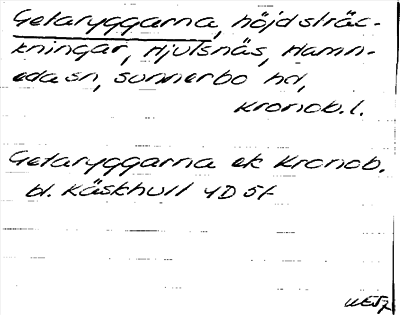 Getaryggarna, höjdsträc-
kningar, Hjulsnäs, Hamn-
eda sn, Sunnerbo hd,
Kronob. l.
Getaryggarna ek Kronob.
bl. Käskhull 4D 5f